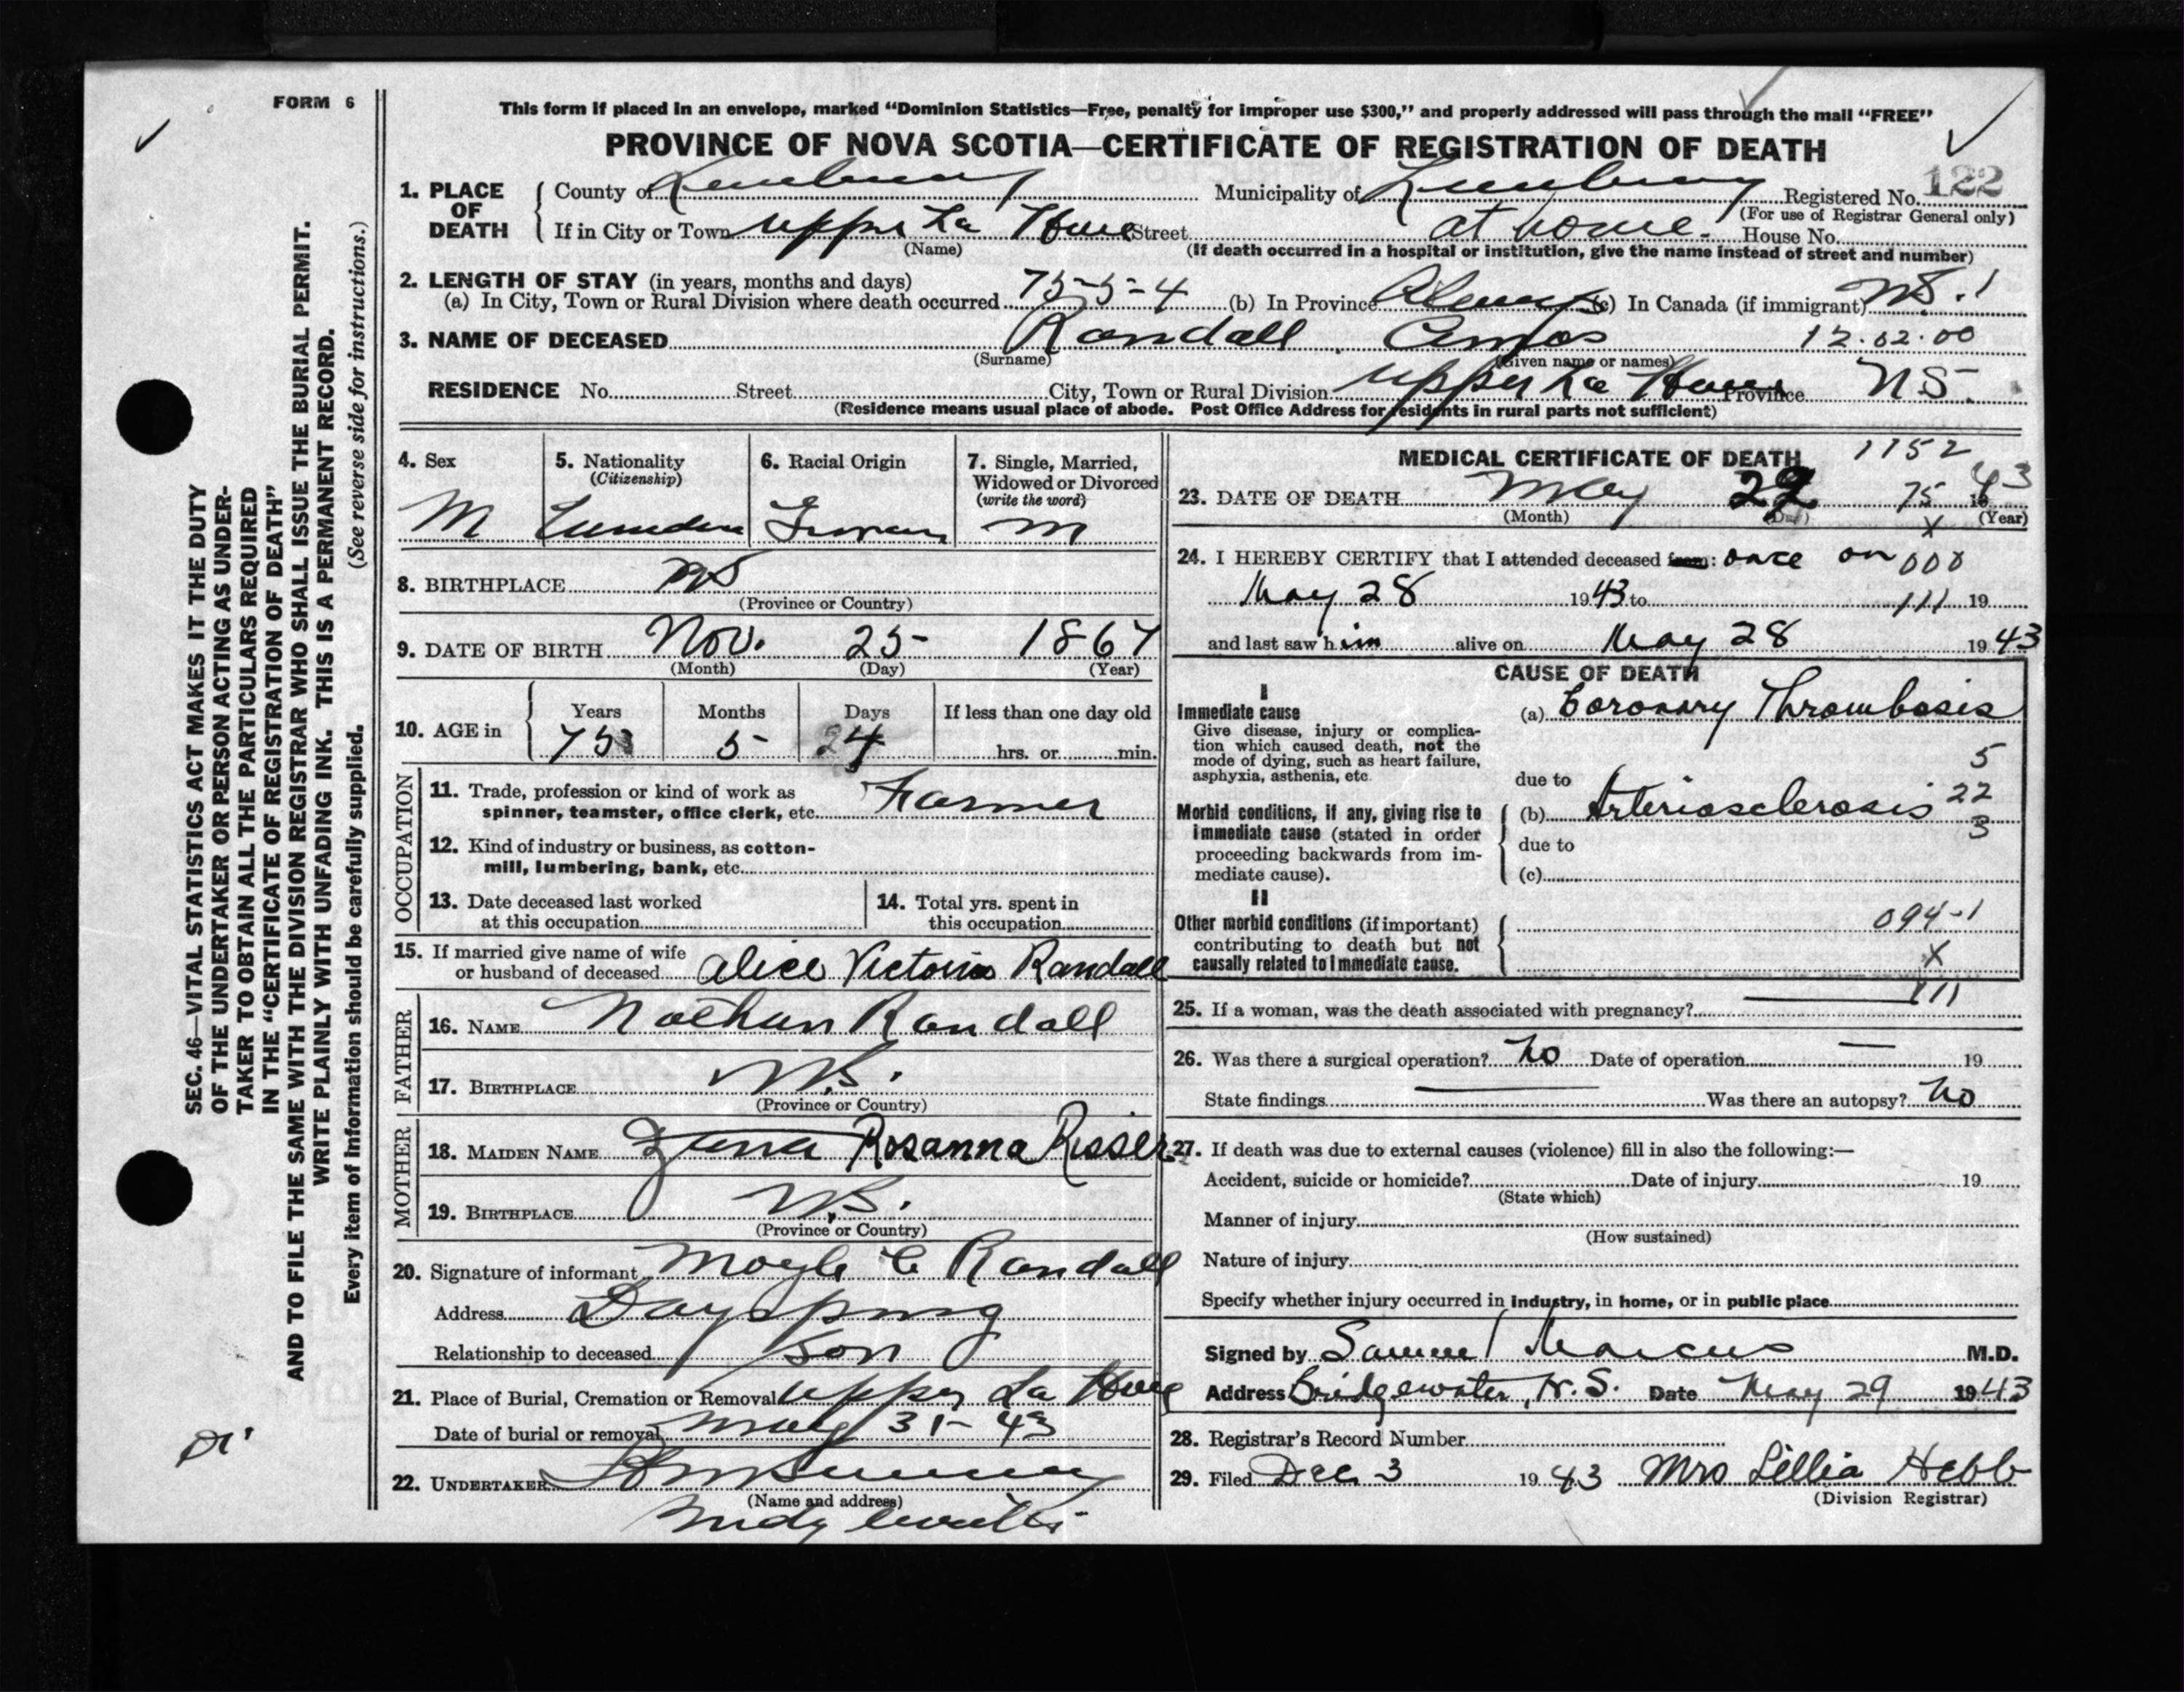 FORM 6
This form if placed in an envelope, marked “Dominion Statistics—Free, penalty for improper use $300,” and properly addressed will pass through the mail “FREE”
PROVINCE OF NOVA SCOTIA—CERTIFICATE OF REGISTRATION OF DEATH
SEC. 46—VITAL STATISTICS ACT MAKES IT THE DUTY
OF THE UNDERTAKER OR PERSON ACTING AS UNDER-
TAKER TO OBTAIN ALL THE PARTICULARS REQUIRED
IN THE “CERTIFICATE OF REGISTRATION OF DEATH”
AND TO FILE THE SAME WITH THE DIVISION REGISTRAR WHO SHALL ISSUE THE BURIAL PERMIT.
WRITE PLAINLY WITH UNFADING INK. THIS IS A PERMANENT RECORD.
Every item of information should be carefully supplied. (See reverse side for instructions.)
1. PLACE OF DEATH
County of Lunenburg Municipality of Lunenburg Registered No. 122
(For use of Registrar General only)
If in City or Town Upper La Have Street at home. House No.
(Name) (If death occurred in a hospital or institution, give the name instead of street and number)
2. LENGTH OF STAY (in years, months and days)
(a) In City, Town or Rural Division where death occurred 75-5-4 (b) In Province Always (c) In Canada (if immigrant) NS. 1
3. NAME OF DECEASED Randall Amos 12.02.00
(Surname) (Given name or names)
RESIDENCE No. Street City, Town or Rural Division Upper La Have Province NS.
(Residence means usual place of abode. Post Office Address for residents in rural parts not sufficient)
4. Sex
M
5. Nationality
(Citizenship)
6. Racial Origin
7. Single, Married,
Widowed or Divorced
(write the word)
M
8. BIRTHPLACE NS
(Province or Country)
9. DATE OF BIRTH Nov. 25 1867
(Month) (Day) (Year)
10. AGE in Years Months Days If less than one day old
75 5 24 hrs. or min.
OCCUPATION
11. Trade, profession or kind of work as
spinner, teamster, office clerk, etc. Farmer
12. Kind of industry or business, as cotton-
mill, lumbering, bank, etc.
13. Date deceased last worked
at this occupation
14. Total yrs. spent in
this occupation
15. If married give name of wife
or husband of deceased Alice Victoria Randall
FATHER
16. NAME Nathan Randall
17. BIRTHPLACE N.S.
(Province or Country)
MOTHER
18. MAIDEN NAME Rosanna Risser
19. BIRTHPLACE N.S.
(Province or Country)
20. Signature of informant Moyle C Randall
Address Dayspring
Relationship to deceased Son
21. Place of Burial, Cremation or Removal Upper La Have
Date of burial or removal May 31-43
22. UNDERTAKER
(Name and address)
MEDICAL CERTIFICATE OF DEATH 1152
23. DATE OF DEATH May 75 1943
(Month) (Day) (Year)
X
24. I HEREBY CERTIFY that I attended deceased from: once on 000
May 28 1943 to 111 19
and last saw him alive on May 28 1943
CAUSE OF DEATH
I
Immediate cause
Give disease, injury or complica-
tion which caused death, not the
mode of dying, such as heart failure,
asphyxia, asthenia, etc.
(a) Coronary Thrombosis
5
due to
Morbid conditions, if any, giving rise to
immediate cause (stated in order
proceeding backwards from im-
mediate cause).
(b) Arteriosclerosis 22
3
due to
(c)
II
Other morbid conditions (if important)
contributing to death but not
causally related to immediate cause.
094-1
X
25. If a woman, was the death associated with pregnancy? 111
26. Was there a surgical operation? No Date of operation — 19
State findings Was there an autopsy? No
27. If death was due to external causes (violence) fill in also the following:—
Accident, suicide or homicide? Date of injury 19
(State which)
Manner of injury
(How sustained)
Nature of injury
Specify whether injury occurred in industry, in home, or in public place
Signed by Samuel Marcus M.D.
Address Bridgewater, N.S. Date May 29 1943
28. Registrar's Record Number
29. Filed Dec 3 1943 Mrs Lillia Hebb
(Division Registrar)